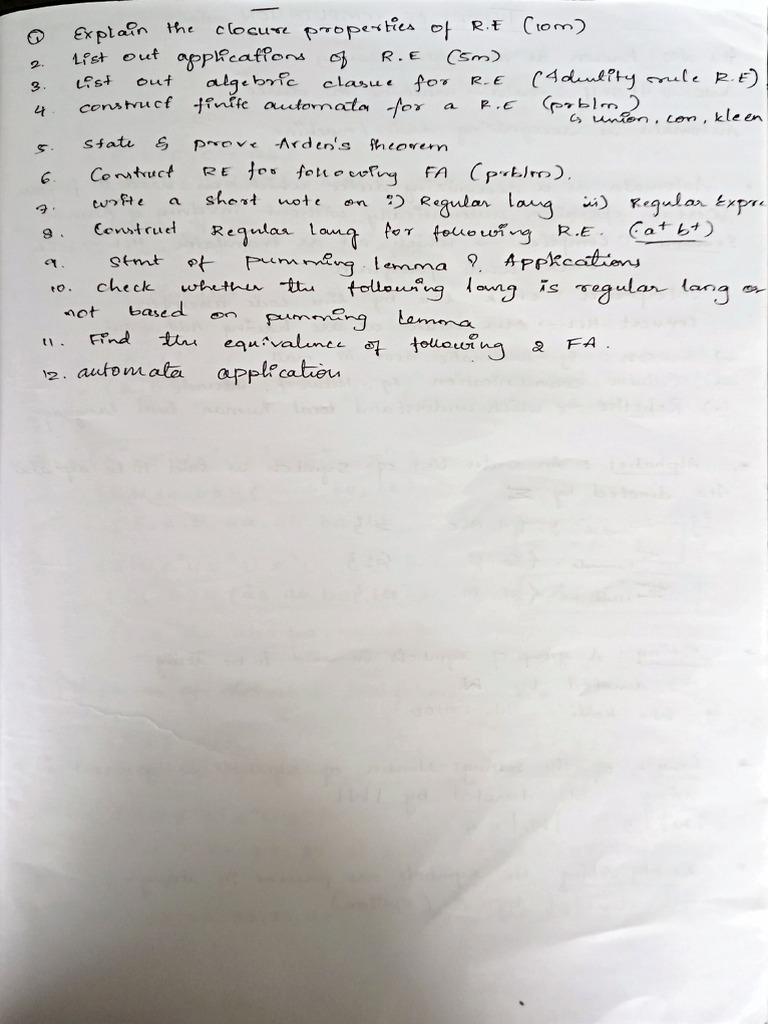 ① Explain the closure properties of R.E (10m)
2. List out applications of R.E (5m)
3. List out algebric clasue for R.E (Identity rule R.E)
4. construct finite automata for a R.E (prblm)
↳ union, con, kleen
5. state & prove Arden's theorem
6. Construct RE for following FA (prblm).
7. write a short note on i) Regular lang ii) Regular Expre
8. Construct Regular lang for following R.E. (a+ b+)
9. Stmt of pumming lemma & Applications
10. check whether the following lang is regular lang or
not based on pumming lemma
11. Find the equivalence of following 2 FA.
12. automata application